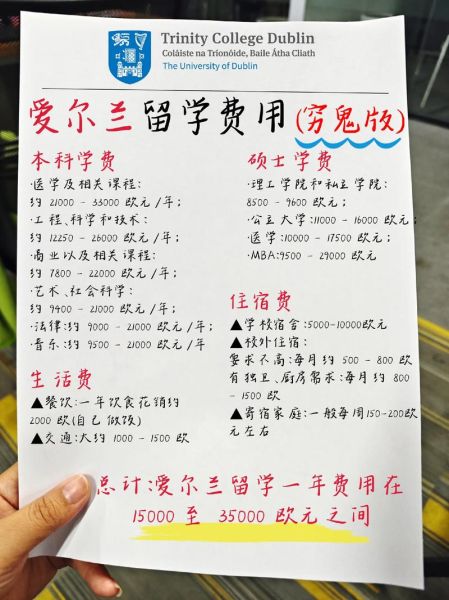 Trinity College Dublin
Coláiste na Tríonóide, Baile Átha Cliath
The University of Dublin
爱尔兰留学费用(穷鬼版)
本科学费
·医学及相关课程:
约 21000 - 33000 欧元/年;
·工程、科学和技术:
约 12250 - 26000 欧元/年;
·商业以及相关课程:
约 7800 - 22000 欧元/年;
·艺术、社会科学:
约 9400 - 21000 欧元/年;
·法律:约 9000 - 21000 欧元/年;
·音乐:约 9500 - 21000 欧元/年
生活费
▲餐饮:一年饮食花销约
2000 欧(自己做饭)
▲交通:大约 1000 - 1500 欧
硕士学费
·理工学院和私立学院:
8500 - 9600 欧元;
·公立大学:11000 - 16000 欧元;
·医学:10000 - 17500 欧元;
·MBA:9500 - 29000 欧元
住宿费
▲学校宿舍:5000-10000欧元
▲校外住宿:
要求不高:每月约 500 - 800 欧
有独卫、厨房需求:每月约 800
- 1500 欧
▲寄宿家庭:一般每周150-200欧
元左右
总计:爱尔兰留学一年费用在
15000 至 35000 欧元之间